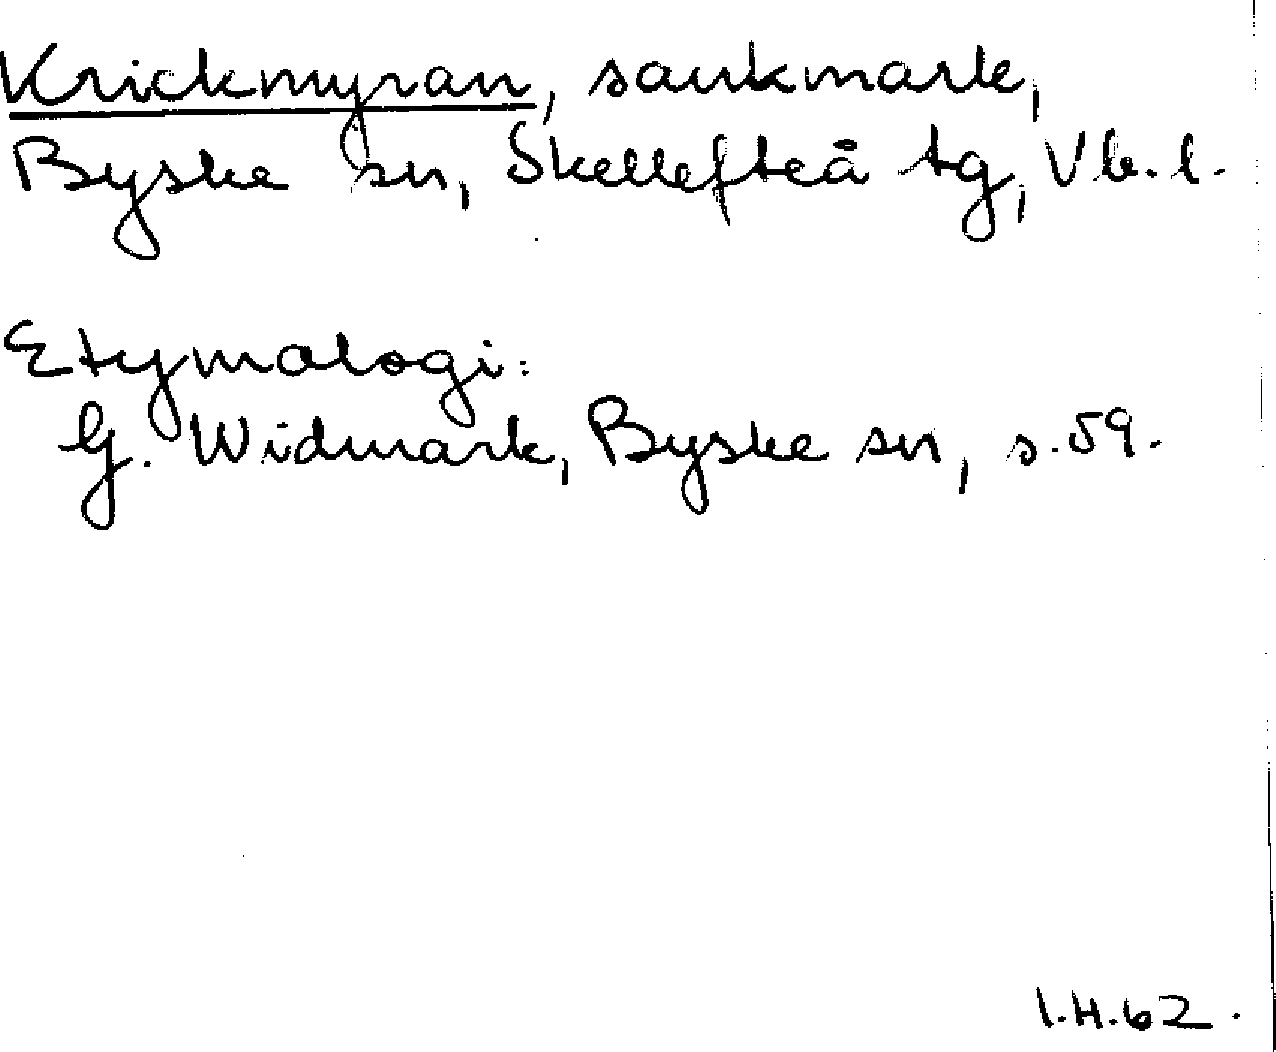 Krickmyran, sankmark,
Byske sn, Skellefteå tg, Vb. l.
Etymologi:
G. Widmark, Byske sn, s. 59.
I.H. 62.